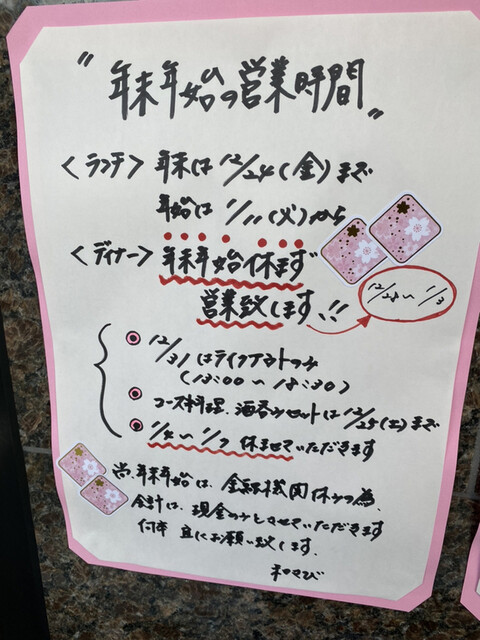 〝年末年始の営業時間〟
<ランチ> 年末は 12/24(金)まで
年始は 1/11(火)から
<ディナー> 年末年始休まず
営業致します!!
12/28〜1/3
12/31はテイクアウトのみ
(13:00〜18:30)
コース料理、酒呑みセットは12/25(土)まで
1/4〜1/7 休ませていただきます
尚、年末年始は、金融機関休みの為、
会計は、現金のみとさせていただきます
何卒 宜しくお願い致します。